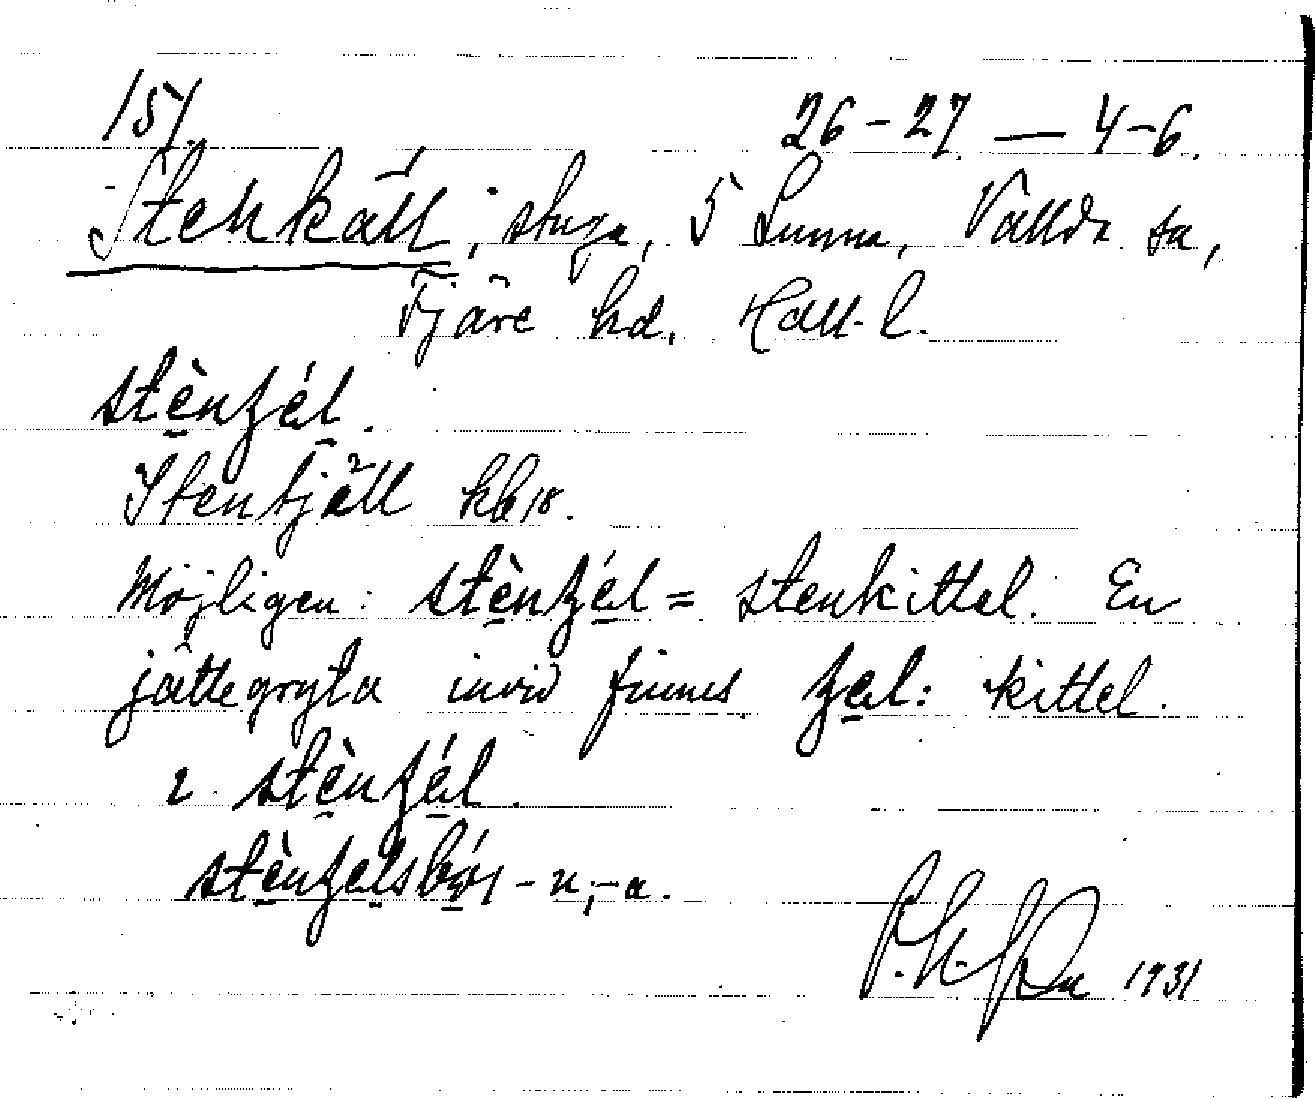 151.
26-27 — 4-6.
Stenkäll, stuga, 5 Lunna, Vallda sn,
Fjäre hd. Hall. l.
stènʒél.
Stentjäll kb 18.
Möjligen: stènʒél = stenkittel. En
jättegryta invid finnes ʒel: kittel.
2. stènʒél.
stènʒels -n, -a.
1931